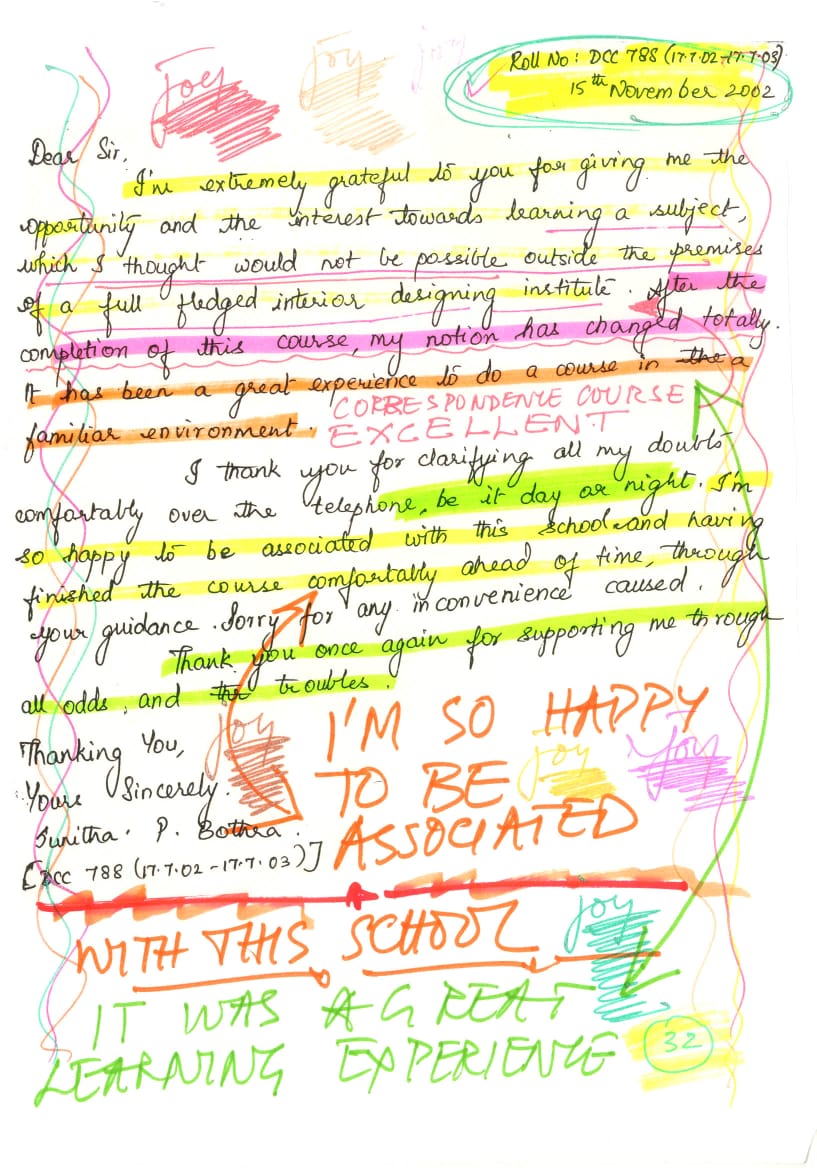 joy joy joy
Roll No: DCC 788 (17.7.02-17.7.03)
15th November 2002
Dear Sir,
I'm extremely grateful to you for giving me the
opportunity and the interest towards learning a subject,
which I thought would not be possible outside the premises
of a full fledged interior designing institute. After the
completion of this course, my notion has changed totally.
It has been a great experience to do a course in the a
familiar environment.
CORRESPONDENCE COURSE
EXCELLENT
I thank you for clarifying all my doubts
comfortably over the telephone, be it day or night. I'm
so happy to be associated with this school and having
finished the course comfortably ahead of time, through
your guidance. Sorry for any inconvenience caused.
Thank you once again for supporting me through
all odds, and the troubles.
Thanking You,
Yours Sincerely.
Sunitha. P. Bothra.
[DCC 788 (17.7.02-17.7.03)]
joy
I'M SO HAPPY
joy joy
TO BE
ASSOCIATED
WITH THIS SCHOOL
joy
IT WAS A GREAT
LEARNING EXPERIENCE
32